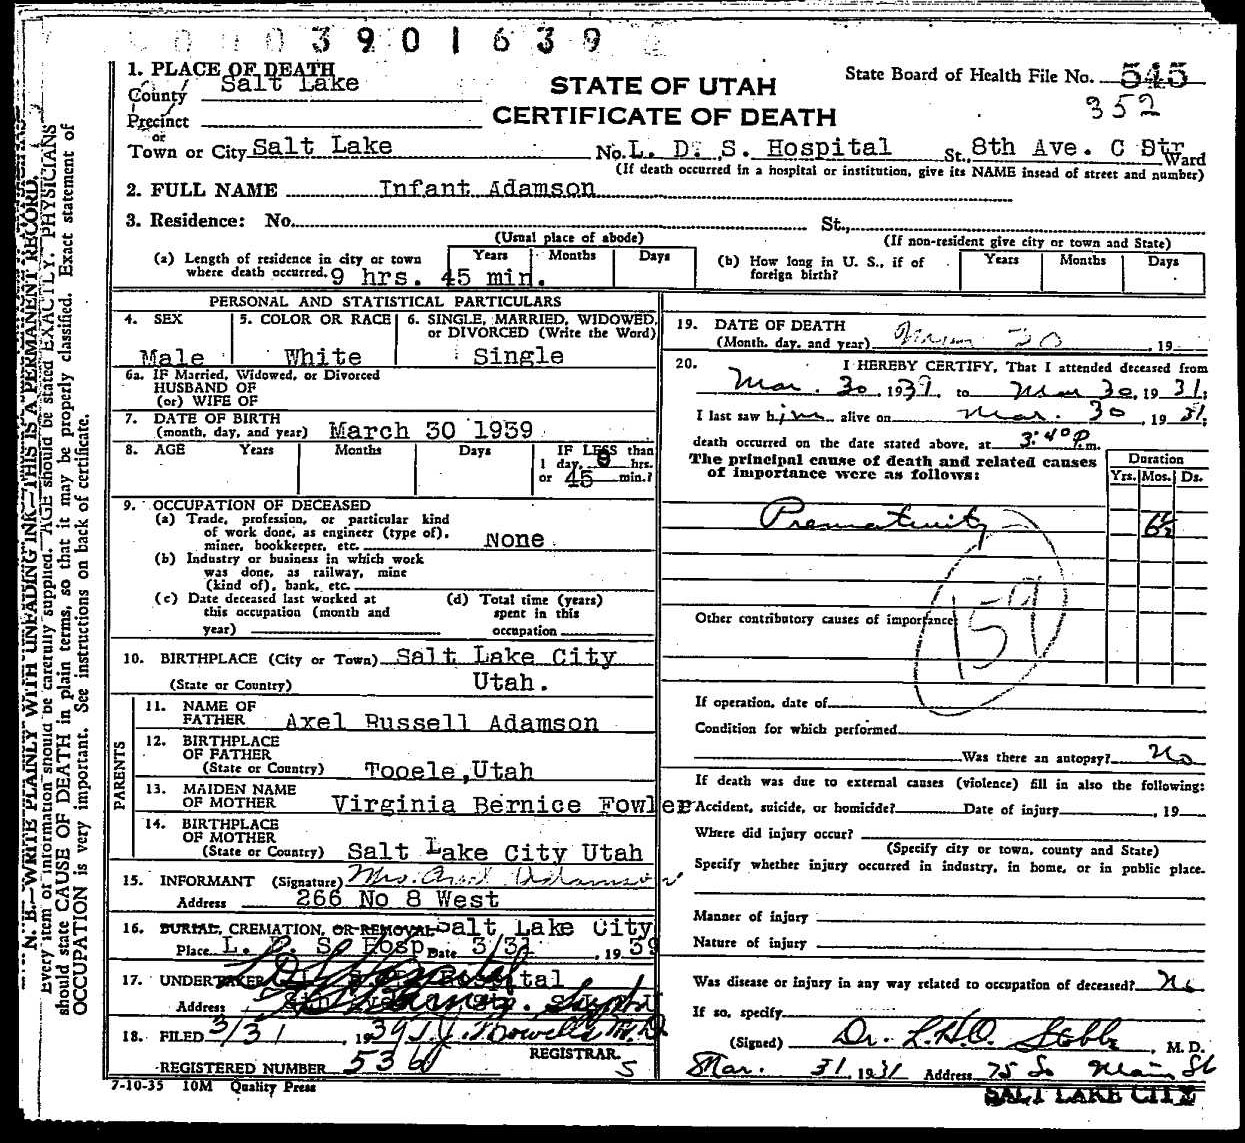 3901639
1. PLACE OF DEATH
County Salt Lake
Precinct
or
Town or City Salt Lake
STATE OF UTAH
CERTIFICATE OF DEATH
State Board of Health File No. 545
352
No. L. D. S. Hospital St., 8th Ave. C Str Ward
(If death occurred in a hospital or institution, give its NAME insead of street and number)
2. FULL NAME Infant Adamson
3. Residence: No. St.,
(Usual place of abode) (If non-resident give city or town and State)
(a) Length of residence in city or town where death occurred. 9 hrs. 45 min. Years Months Days
(b) How long in U. S., if of foreign birth? Years Months Days
PERSONAL AND STATISTICAL PARTICULARS
4. SEX Male
5. COLOR OR RACE White
6. SINGLE, MARRIED, WIDOWED, or DIVORCED (Write the Word) Single
6a. IF Married, Widowed, or Divorced
HUSBAND OF
(or) WIFE OF
7. DATE OF BIRTH
(month, day, and year) March 30 1939
8. AGE Years Months Days IF LESS than
1 day, 9 hrs.
or 45 min.?
9. OCCUPATION OF DECEASED
(a) Trade, profession, or particular kind
of work done, as engineer (type of),
miner, bookkeeper, etc. None
(b) Industry or business in which work
was done, as railway, mine
(kind of), bank, etc.
(c) Date deceased last worked at
this occupation (month and
year)
(d) Total time (years)
spent in this
occupation
10. BIRTHPLACE (City or Town) Salt Lake City
(State or Country) Utah.
PARENTS
11. NAME OF
FATHER Axel Russell Adamson
12. BIRTHPLACE
OF FATHER
(State or Country) Tooele, Utah
13. MAIDEN NAME
OF MOTHER Virginia Bernice Fowler
14. BIRTHPLACE
OF MOTHER
(State or Country) Salt Lake City Utah
15. INFORMANT (Signature) Mrs. Adamson
Address 266 No 8 West
16. BURIAL, CREMATION, OR REMOVAL Salt Lake City
Place L. D. S. Hosp. Date 3/31, 1939
17. UNDERTAKER L. D. S. Hospital
Address
18. FILED 3/31, 1939 T. J. Howells M.D.
REGISTRAR.
REGISTERED NUMBER 536
S
7-10-35 10M Quality Press
19. DATE OF DEATH
(Month, day, and year) 30, 19
20. I HEREBY CERTIFY, That I attended deceased from
Mar. 30 1939, to Mar 30, 1931;
I last saw him alive on Mar. 30, 1931;
death occurred on the date stated above, at 3:40 P.m.
The principal cause of death and related causes
of importance were as follows:
Duration
Yrs. Mos. Ds.
Prematurity 6½
159
Other contributory causes of importance:
If operation, date of
Condition for which performed
Was there an autopsy? No
If death was due to external causes (violence) fill in also the following:
Accident, suicide, or homicide? Date of injury , 19
Where did injury occur?
(Specify city or town, county and State)
Specify whether injury occurred in industry, in home, or in public place.
Manner of injury
Nature of injury
Was disease or injury in any way related to occupation of deceased? No
If so, specify
(Signed) Dr. L.H.O. Stobbe, M. D.
Mar. 31, 1931 Address 75 So Main St
SALT LAKE CITY
N. B.—WRITE PLAINLY WITH UNFADING INK—THIS IS A PERMANENT RECORD.
Every item of information should be carefully supplied. AGE should be stated EXACTLY. PHYSICIANS
should state CAUSE OF DEATH in plain terms, so that it may be properly classified. Exact statement of
OCCUPATION is very important. See instructions on back of certificate.